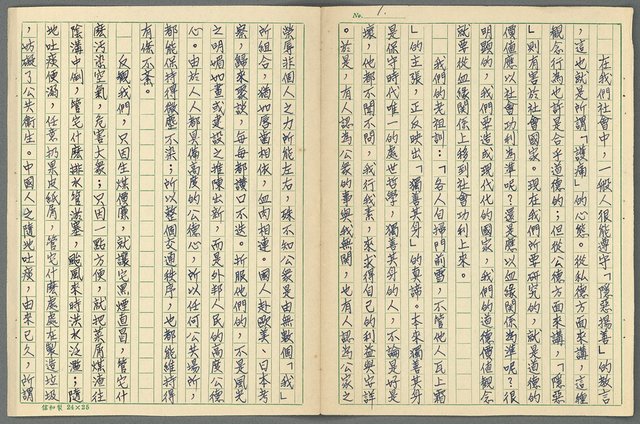 No. 1.
在我們社會中，一般人很能遵守「隱惡揚善」的教言
，這也就是所謂「護痛」的心態。從私德方面來講，這種
觀念行為也許是合乎道德的；但從公德方面來講，「隱惡
」則有害於社會國家。現在我們所要研究的，就是道德的
價值應以社會功利為準呢？還是應以血緣關係為準呢？很
明顯的，我們要造成現代化的國家，我們的道德價值觀念
就要從血緣關係上移到社會功利上來。
我們的老祖訓：「各人自掃門前雪，不管他人瓦上霜
」的主張，正反映出「獨善其身」的真諦。本來獨善其身
是保守時代唯一的處世哲學，獨善其身的人，不論是好是
壞，他都不聞不問，我行我素，來求得自己的利益與安詳
。於是，有人認為公家的事與我無關，也有人認為公家之
榮辱非個人之力所能左右，殊不知公眾是由無數個「我」
所組合，猶如唇齒相依，血肉相連。國人赴歐美、日本考
察，歸來聚談，每每都讚口不迭。折服他們的，不是風光
之明媚如畫或建設之推陳出新，而是外邦人民的高度公德
心。由於人人都具備高度的公德心，所以任何公共場所，
都能保持得微塵不染；所以整個交通秩序，也都能維持得
有條不紊。
反觀我們，只因生煤價廉，就讓它黑煙直冒，管它什
麼污染空氣，危害大眾；只因一點方便，就把菜屑煤渣往
陰溝中倒，管它什麼排水管洪塞，颱風來時洪水泛濫；隨
地吐痰便溺，任意扔果皮紙屑，管它什麼處處在製造垃圾
，妨礙了公共衛生。中國人之隨地吐痰，由來已久，所謂
信和製 24×25